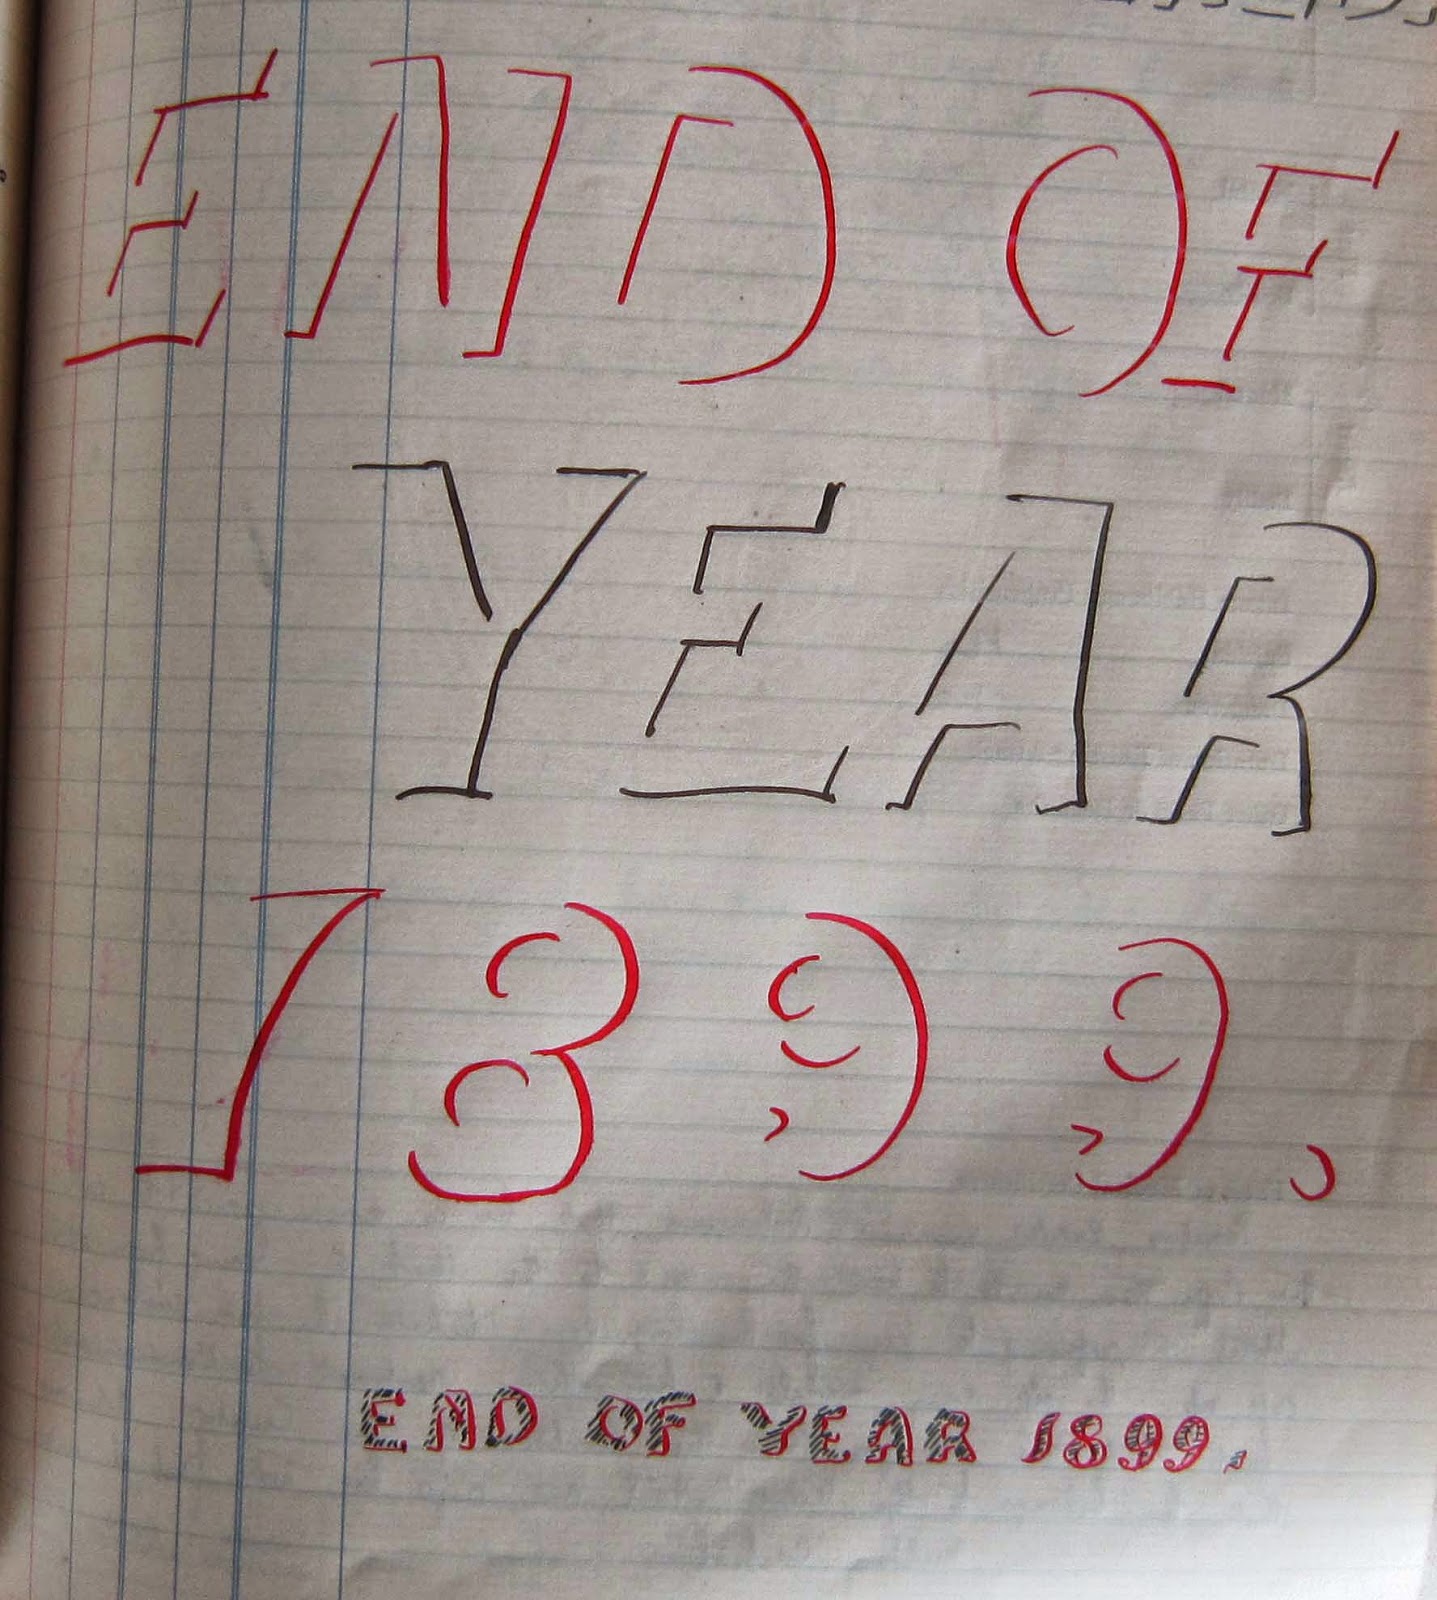 END OF
YEAR
1899.
END OF YEAR 1899.